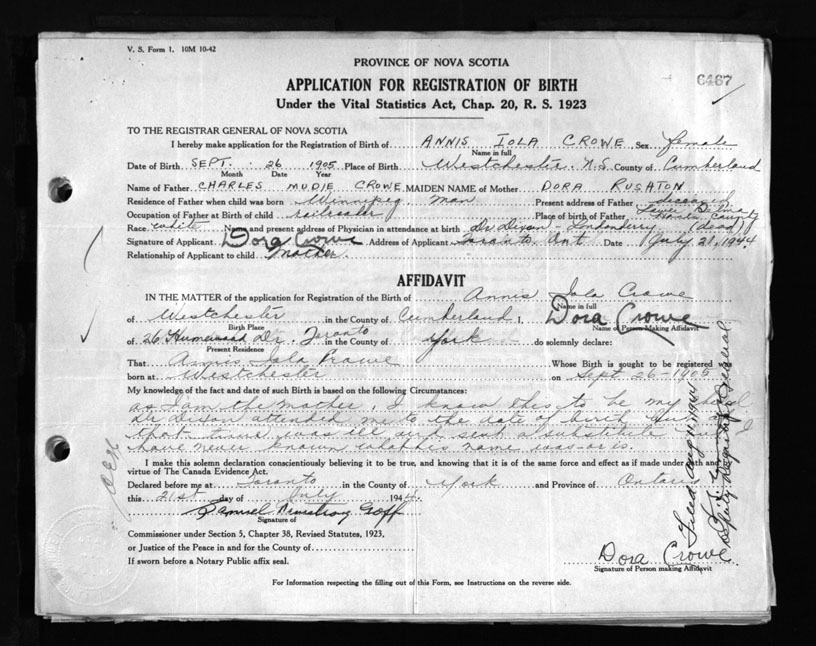 V. S. Form 1. 10M 10-42
PROVINCE OF NOVA SCOTIA
6467
APPLICATION FOR REGISTRATION OF BIRTH
Under the Vital Statistics Act, Chap. 20, R. S. 1923
TO THE REGISTRAR GENERAL OF NOVA SCOTIA
I hereby make application for the Registration of Birth of ANNIS IOLA CROWE Sex female
Name in full
Date of Birth SEPT. 26 1905 Place of Birth Westchester N.S. County of Cumberland
Month Date Year
Name of Father CHARLES MUDIE CROWE MAIDEN NAME of Mother DORA RUSHTON
Residence of Father when child was born Winnipeg, Man Present address of Father
Occupation of Father at Birth of child railroader Place of birth of Father
Race white Name and present address of Physician in attendance at birth Dr Dixon - Londonderry (dead)
Signature of Applicant Dora Crowe Address of Applicant Toronto Ont. Date July 21, 1944
Relationship of Applicant to child Mother.
AFFIDAVIT
IN THE MATTER of the application for Registration of the Birth of Annis Iola Crowe
Name in full
of Westchester in the County of Cumberland I, Dora Crowe
Birth Place Name of Person Making Affidavit
of 26 Humewood Dr. Toronto in the County of York do solemnly declare:
Present Residence
That Annis Iola Crowe Whose Birth is sought to be registered was
born at Westchester on Sept 26-1905
My knowledge of the fact and date of such Birth is based on the following Circumstances:
as I am the Mother, I know this to be my child
Dr Dixon attended me to the date of birth but at
that time was ill and sent a substitute
have never known what his name was or is.
I make this solemn declaration conscientiously believing it to be true, and knowing that it is of the same force and effect as if made under oath and
virtue of The Canada Evidence Act.
Declared before me at Toronto in the County of York and Province of Ontario
this 21st day of July 1944.
Samuel Armstrong Goff
Signature of
Commissioner under Section 5, Chapter 38, Revised Statutes, 1923,
or Justice of the Peace in and for the County of
If sworn before a Notary Public affix seal.
Dora Crowe
Signature of Person making Affidavit
For Information respecting the filling out of this Form, see Instructions on the reverse side.
Filed Aug 11, 1944
Deputy Registrar General